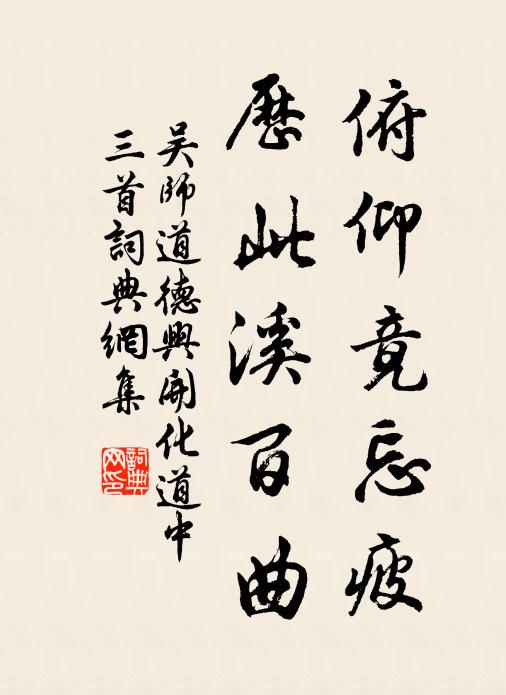 俯仰竟忘疲
歷此溪百曲
吴師道德興開化道中
三首詞典網集
詞典网印